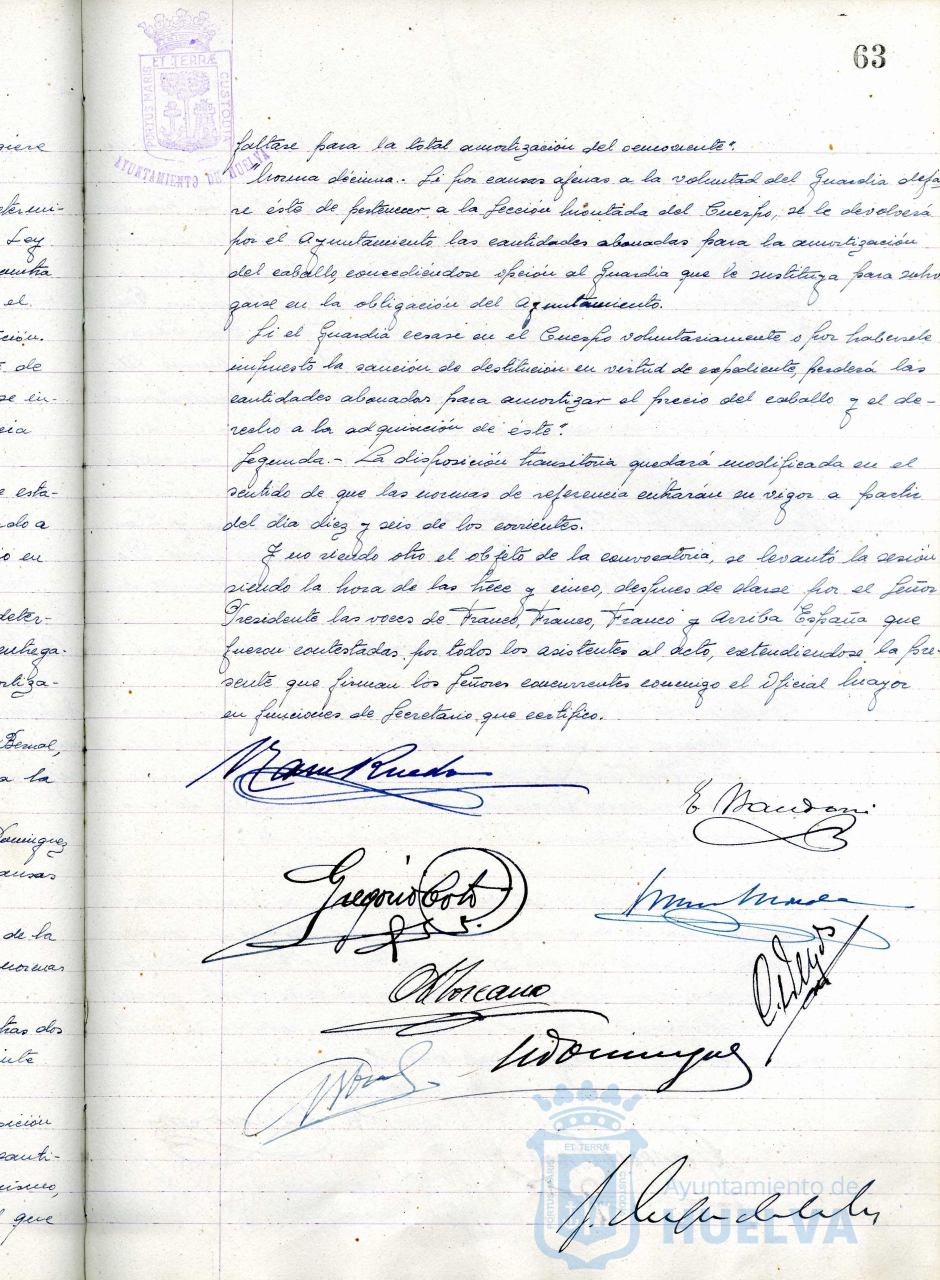 63
PORTUS MARIS ET TERRÆ CUSTODIA
AYUNTAMIENTO DE HUELVA
faltase para la total amortización del semoviente".
"Norma décima.- Si por causas ajenas a la voluntad del Guardia deja-
re éste de pertenecer a la Sección Montada del Cuerpo, se le devolverá
por el Ayuntamiento las cantidades abonadas para la amortización
del caballo, concediendose opción al Guardia que le sustituya para subro
garse en la obligación del Ayuntamiento.
Si el Guardia cesase en el Cuerpo voluntariamente o por habersele
impuesto la sanción de destitución en virtud de expediente, perderá las
cantidades abonadas para amortizar el precio del caballo y el de-
recho a la adquisición de éste".
Segunda.- La disposición transitoria quedará modificada en el
sentido de que las normas de referencia entrarán en vigor a partir
del dia diez y seis de los corrientes.
Y no siendo otro el objeto de la convocatoria, se levantó la sesión
siendo la hora de las trece y cinco, despues de darse por el Señor
Presidente las voces de Franco, Franco, Franco y Arriba España que
fueron contestadas por todos los asistentes al acto, extendiendose la pre-
sente que firman los Señores concurrentes conmigo el Oficial Mayor
en funciones de Secretario, que certifico.
Gregorio Coto
Dominguez
ET TERRÆ
PORTUS MARIS
CUSTODIA
Ayuntamiento de
HUELVA